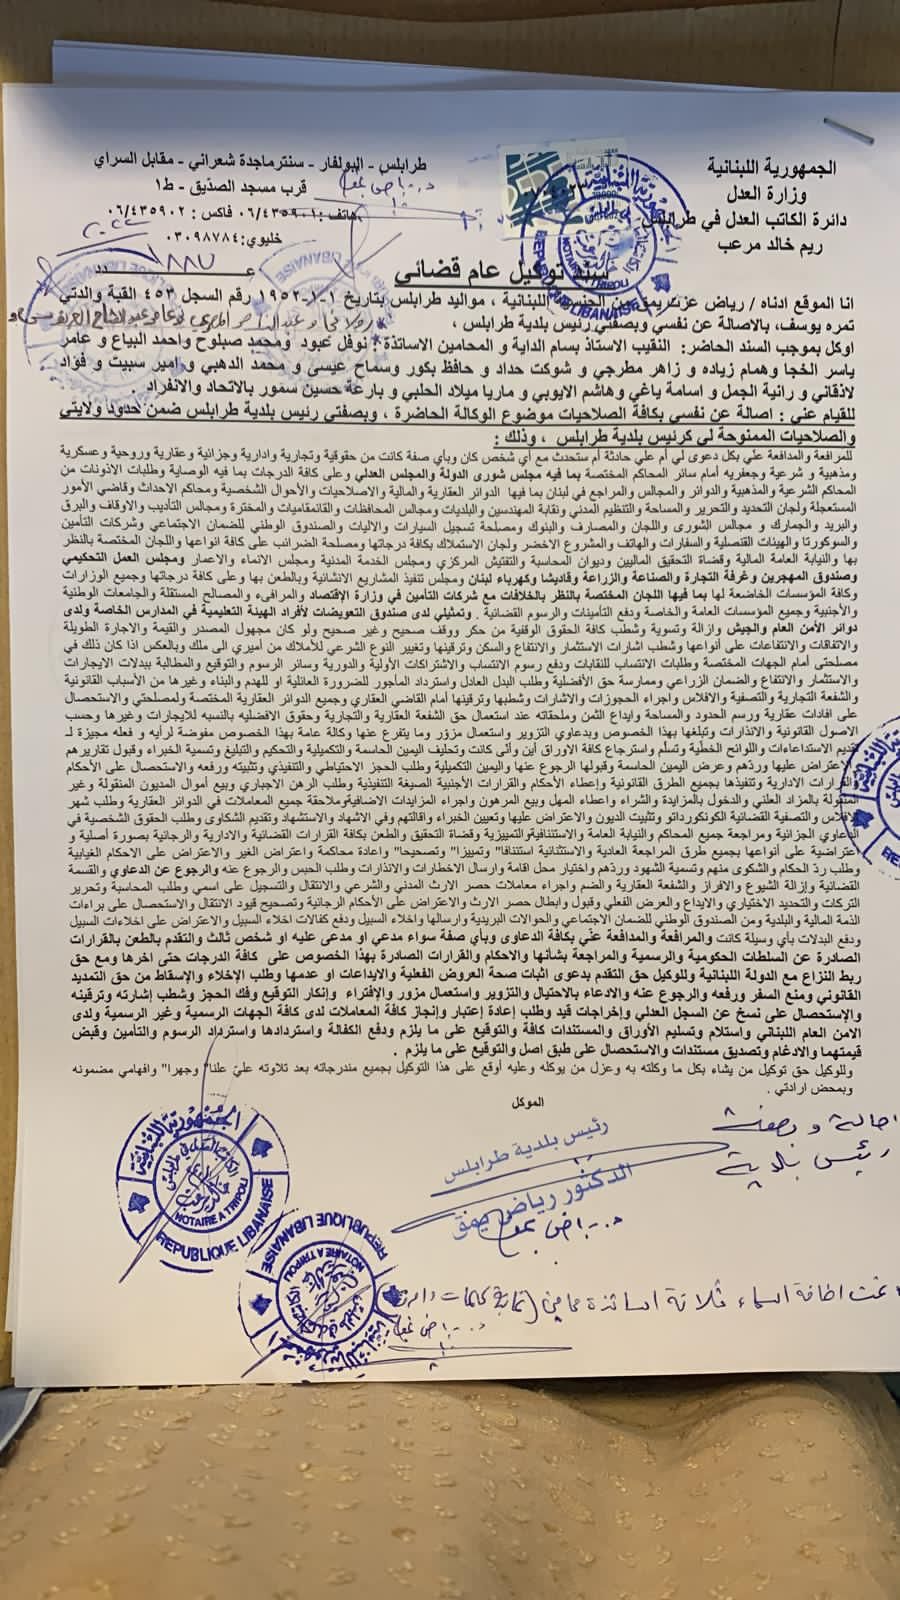 الجمهورية اللبنانية
وزارة العدل
دائرة الكاتب العدل في طرابلس
ريم خالد مرعب
طرابلس - البولفار - سنتر ماجدة شعراني - مقابل السراي
قرب مسجد الصدّيق - ط١
هاتف: ٠٦/٤٣٥٩٠١ فاكس: ٠٦/٤٣٥٩٠٢
خليوي: ٠٣٠٩٨٧٨٤
سند توكيل عام قضائي
انا الموقع ادناه / رياض عزت يمق من الجنسية اللبنانية ، مواليد طرابلس بتاريخ ١-١-١٩٥٢ رقم السجل ٤٥٣ القبة والدتي
تمره يوسف، بالاصالة عن نفسي وبصفتي رئيس بلدية طرابلس ،
اوكل بموجب السند الحاضر: النقيب الاستاذ بسام الداية و المحامين الاساتذة : نوفل عبود ومحمد صبلوح واحمد البياع و عامر
ياسر الخجا وهمام زياده و زاهر مطرجي و شوكت حداد و حافظ بكور وسماح عيسى و محمد الدهبي و امير سبيت و فؤاد
لاذقاني و رانية الجمل و اسامة ياغي وهاشم الايوبي و ماريا ميلاد الحلبي و بارعة حسين سمور بالاتحاد والانفراد
للقيام عني : اصالة عن نفسي بكافة الصلاحيات موضوع الوكالة الحاضرة ، وبصفتي رئيس بلدية طرابلس ضمن حدود ولايتي
والصلاحيات الممنوحة لي كرئيس بلدية طرابلس ، وذلك :
للمرافعة والمدافعة علي بكل دعوى لي أم علي حادثة أم ستحدث مع أي شخص كان وبأي صفة كانت من حقوقية وتجارية وادارية وجزائية وعقارية وروحية وعسكرية
ومذهبية و شرعية وجعفريه أمام سائر المحاكم المختصة بما فيه مجلس شورى الدولة والمجلس العدلي وعلى كافة الدرجات بما فيه الوصاية وطلبات الاذونات من
المحاكم الشرعية والمذهبية والدوائر والمجالس والمراجع في لبنان بما فيها الدوائر العقارية والمالية والاصلاحيات والأحوال الشخصية ومحاكم الاحداث وقاضي الأمور
المستعجلة ولجان التحديد والتحرير والمساحة والتنظيم المدني ونقابة المهندسين و البلديات ومجالس المحافظات والقائمقاميات و المخترة ومجالس التأديب والاوقاف والبرق
والبريد والجمارك و مجالس الشورى واللجان والمصارف والبنوك ومصلحة تسجيل السيارات والاليات والصندوق الوطني للضمان الاجتماعي وشركات التأمين
والسوكورتا والهيئات القنصلية والسفارات و الهاتف والمشروع الاخضر ولجان الاستملاك بكافة درجاتها ومصلحة الضرائب على كافة انواعها واللجان المختصة بالنظر
بها والنيابة العامة المالية وقضاة التحقيق الماليين وديوان المحاسبة والتفتيش المركزي ومجلس الخدمة المدنية ومجلس الانماء والاعمار ومجلس العمل التحكيمي
وصندوق المهجرين وغرفة التجارة والصناعة والزراعة وقاديشا وكهرباء لبنان ومجلس تنفيذ المشاريع الانشائية وبالطعن بها و على كافة درجاتها وجميع الوزارات
وكافة المؤسسات الخاضعة لها بما فيها اللجان المختصة بالنظر بالخلافات مع شركات التأمين في وزارة الإقتصاد والمرافيء والمصالح المستقلة والجامعات الوطنية
والأجنبية وجميع المؤسسات العامة والخاصة ودفع التأمينات والرسوم القضائية . وتمثيلي لدى صندوق التعويضات لأفراد الهيئة التعليمية في المدارس الخاصة ولدى
دوائر الأمن العام والجيش وازالة وتسوية وشطب كافة الحقوق الوقفية من حكر ووقف صحيح وغير صحيح ولو كان مجهول المصدر والقيمة والاجارة الطويلة
والاتفاقات والانتفاعات على أنواعها وشطب اشارات الاستثمار والانتفاع والسكن وترقينها وتغيير النوع الشرعي للأملاك من أميري الى ملك وبالعكس اذا كان ذلك في
مصلحتي أمام الجهات المختصة وطلبات الانتساب للنقابات ودفع رسوم الانتساب والاشتراكات الأولية والدورية وسائر الرسوم والتوقيع والمطالبة ببدلات الايجارات
والاستثمار والانتفاع والضمان الزراعي وممارسة حق الأفضلية وطلب البدل العادل واسترداد المأجور للضرورة العائلية او للهدم والبناء وغيرها من الأسباب القانونية
والشفعة التجارية والتصفية والافلاس واجراء الحجوزات والاشارات وشطبها وترقينها أمام القاضي العقاري وجميع الدوائر العقارية المختصة ولمصلحتي والاستحصال
على افادات عقارية ورسم الحدود والمساحة وايداع الثمن وملحقاته عند استعمال حق الشفعة العقارية و التجارية وحقوق الافضليه بالنسبه للايجارات وغيرها وحسب
الاصول القانونية والانذارات وتبلغها بهذا الخصوص وبدعاوي التزوير واستعمال مزوّر وما يتفرع عنها وكالة عامة بهذا الخصوص مفوضة لرأيه و فعله مجيزة لـ
تقديم الاستدعاءات واللوائح الخطية وتسلّم واسترجاع كافة الاوراق أين وأنى كانت وتحليف اليمين الحاسمة والتكميلية والتحكيم والتبليغ وتسمية الخبراء وقبول تقاريرهم
الاعتراض عليها وردّهم وعرض اليمين الحاسمة وقبولها الرجوع عنها واليمين التكميلية وطلب الحجز الاحتياطي والتنفيذي وتثبيته ورفعه والاستحصال على الأحكام
والقرارات الادارية وتنفيذها بجميع الطرق القانونية وإعطاء الأحكام والقرارات الأجنبية الصيغة التنفيذية وطلب الرهن الاجباري وبيع أموال المديون المنقولة وغير
المنقولة بالمزاد العلني والدخول بالمزايدة والشراء واعطاء المهل وبيع المرهون واجراء المزايدات الاضافية وملاحقة جميع المعاملات في الدوائر العقارية وطلب شهر
الافلاس و التصفية القضائية الكونكورداتو وتثبيت الديون والاعتراض عليها وتعيين الخبراء واقالتهم وفي الاشهاد والاستشهاد وتقديم الشكاوى وطلب الحقوق الشخصية في
الدعاوي الجزائية ومراجعة جميع المحاكم والنيابة العامة والاستئنافية والتمييزية وقضاة التحقيق والطعن بكافة القرارات القضائية والادارية والرجائية بصورة أصلية و
اعتراضية على أنواعها بجميع طرق المراجعة العادية والاستثنائية استئنافا" وتمييزا" وتصحيحا" واعادة محاكمة واعتراض الغير والاعتراض على الاحكام الغيابية
وطلب ردّ الحكام والشكوى منهم وتسمية الشهود وردّهم واختيار محل اقامة وارسال الاخطارات والانذارات وطلب الحبس والرجوع عنه والرجوع عن الدعاوي والقسمة
القضائية وإزالة الشيوع والافراز والشفعة العقارية والضم واجراء معاملات حصر الارث المدني والشرعي والانتقال والتسجيل على اسمي وطلب المحاسبة وتحرير
التركات والتحديد الاختياري والايداع والعرض الفعلي وقبول وابطال حصر الارث والاعتراض على الأحكام الرجائية وتصحيح قيود الانتقال والاستحصال على براءات
الذمة المالية والبلدية ومن الصندوق الوطني للضمان الاجتماعي والحوالات البريدية وارسالها واخلاء السبيل ودفع كفالات اخلاء السبيل والاعتراض على اخلاءات السبيل
ودفع البدلات بأي وسيلة كانت والمرافعة والمدافعة عنّي بكافة الدعاوى وبأي صفة سواء مدعي او مدعى عليه او شخص ثالث والتقدم بالطعن بالقرارات
الصادرة عن السلطات الحكومية والرسمية والمراجعة بشأنها والاحكام والقرارات الصادرة بهذا الخصوص على كافة الدرجات حتى اخرها ومع حق
ربط النزاع مع الدولة اللبنانية وللوكيل حق التقدم بدعوى اثبات صحة العروض الفعلية والايداعات او عدمها وطلب الإخلاء والإسقاط من حق التمديد
القانوني ومنع السفر ورفعه والرجوع عنه والادعاء بالاحتيال والتزوير واستعمال مزور والإفتراء وإنكار التوقيع وفك الحجز وشطب إشارته وترقينه
والإستحصال على نسخ عن السجل العدلي وإخراجات قيد وطلب إعادة إعتبار وإنجاز كافة المعاملات لدى كافة الجهات الرسمية وغير الرسمية ولدى
الامن العام اللبناني واستلام وتسليم الأوراق والمستندات كافة والتوقيع على ما يلزم ودفع الكفالة واستردادها واسترداد الرسوم والتأمين وقبض
قيمتهما والادغام وتصديق مستندات والاستحصال على طبق اصل والتوقيع على ما يلزم .
وللوكيل حق توكيل من يشاء بكل ما وكلته به وعزل من يوكله وعليه أوقع على هذا التوكيل بجميع مندرجاته بعد تلاوته عليّ علنا" وجهرا" وافهامي مضمونه
وبمحض ارادتي .
الموكل
اصالة و بصفتي
رئيس بلدية
رئيس بلدية طرابلس
الدكتور رياض يمق
د. رياض يمق
تمت اضافة اسماء ثلاثة اساتذة محامين
د. رياض يمق
الجمهورية اللبنانية
NOTAIRE A TRIPOLI
REPUBLIQUE LIBANAISE
REPUBLIQUE LIBANAISE
NOTAIRE A TRIPOLI